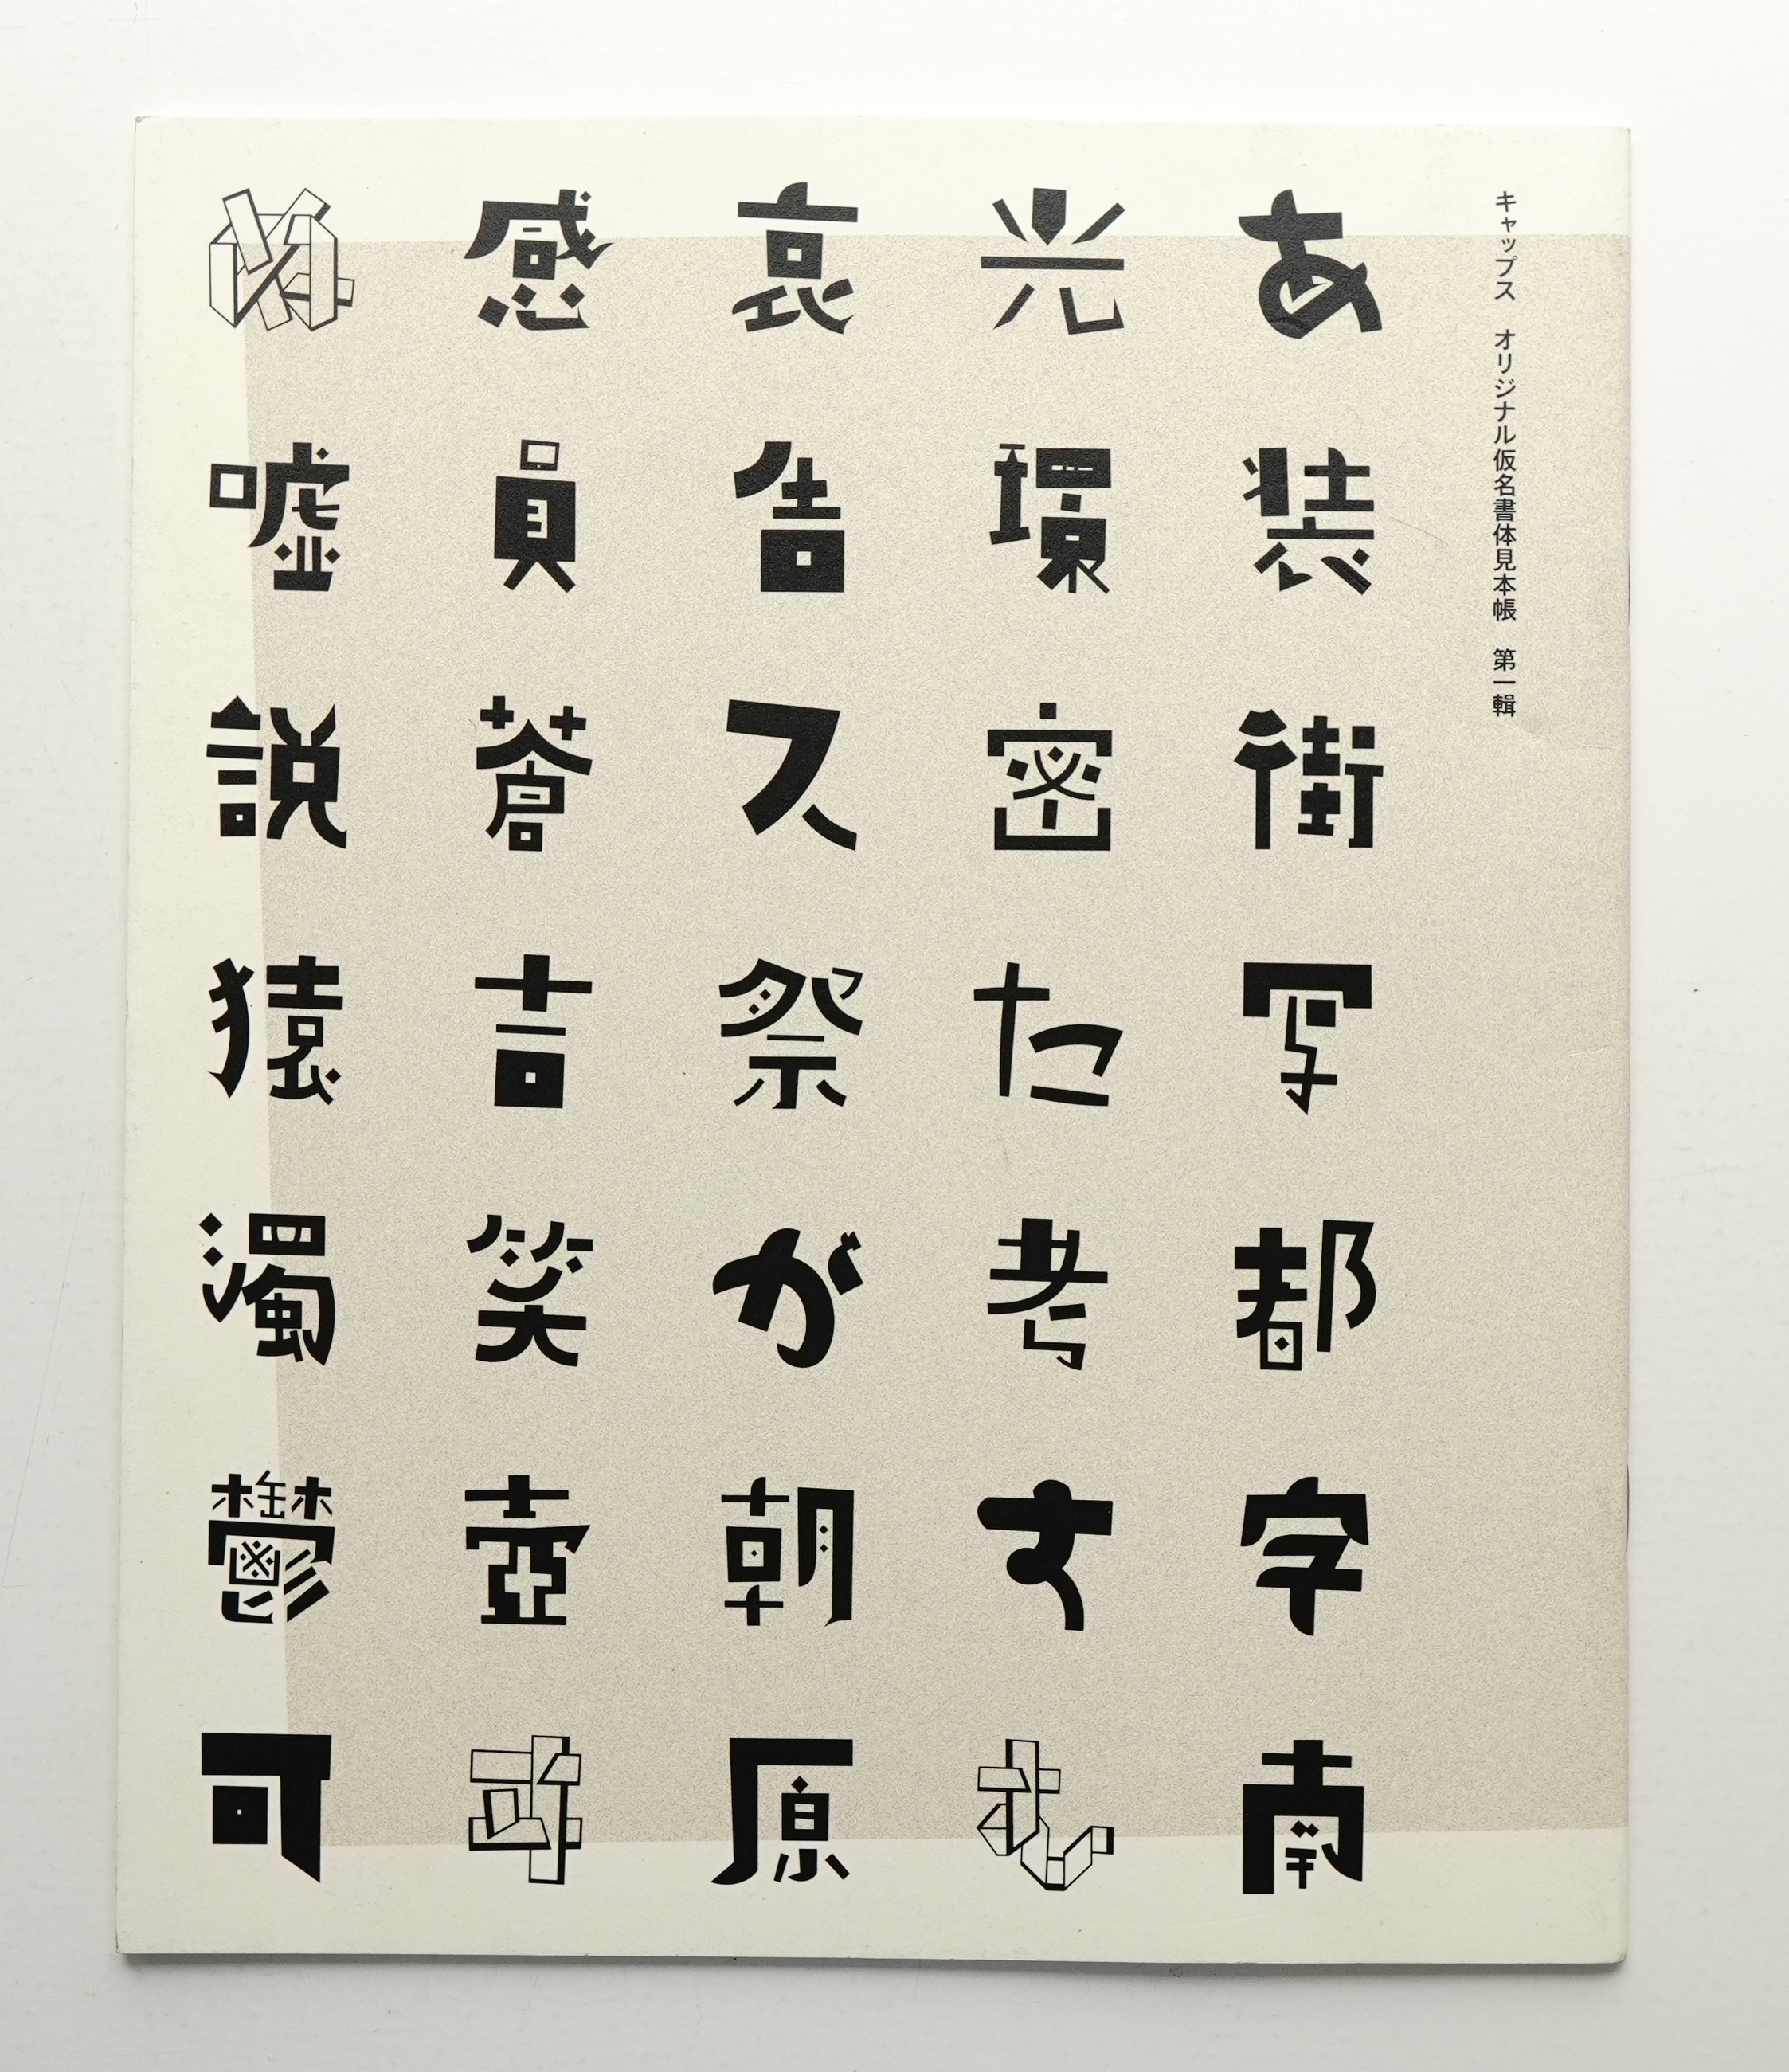 キャップス オリジナル仮名書体見本帳 第一輯
あ装街写都字南
光環密た考す
哀告ス祭が朝原
感員蒼吉笑壺
嘘説猿濁鬱可